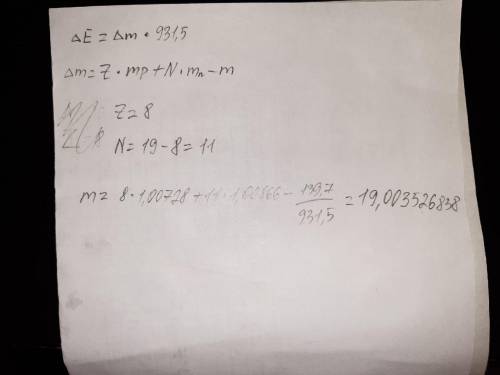 ΔE = Δm • 931,5
Δm = Z • mp + N • mn - m
Z = 8
N = 19 - 8 = 11
m = 8 • 1,00728 + 11 • 1,00866 - 139,7/931,5 = 19,003526838